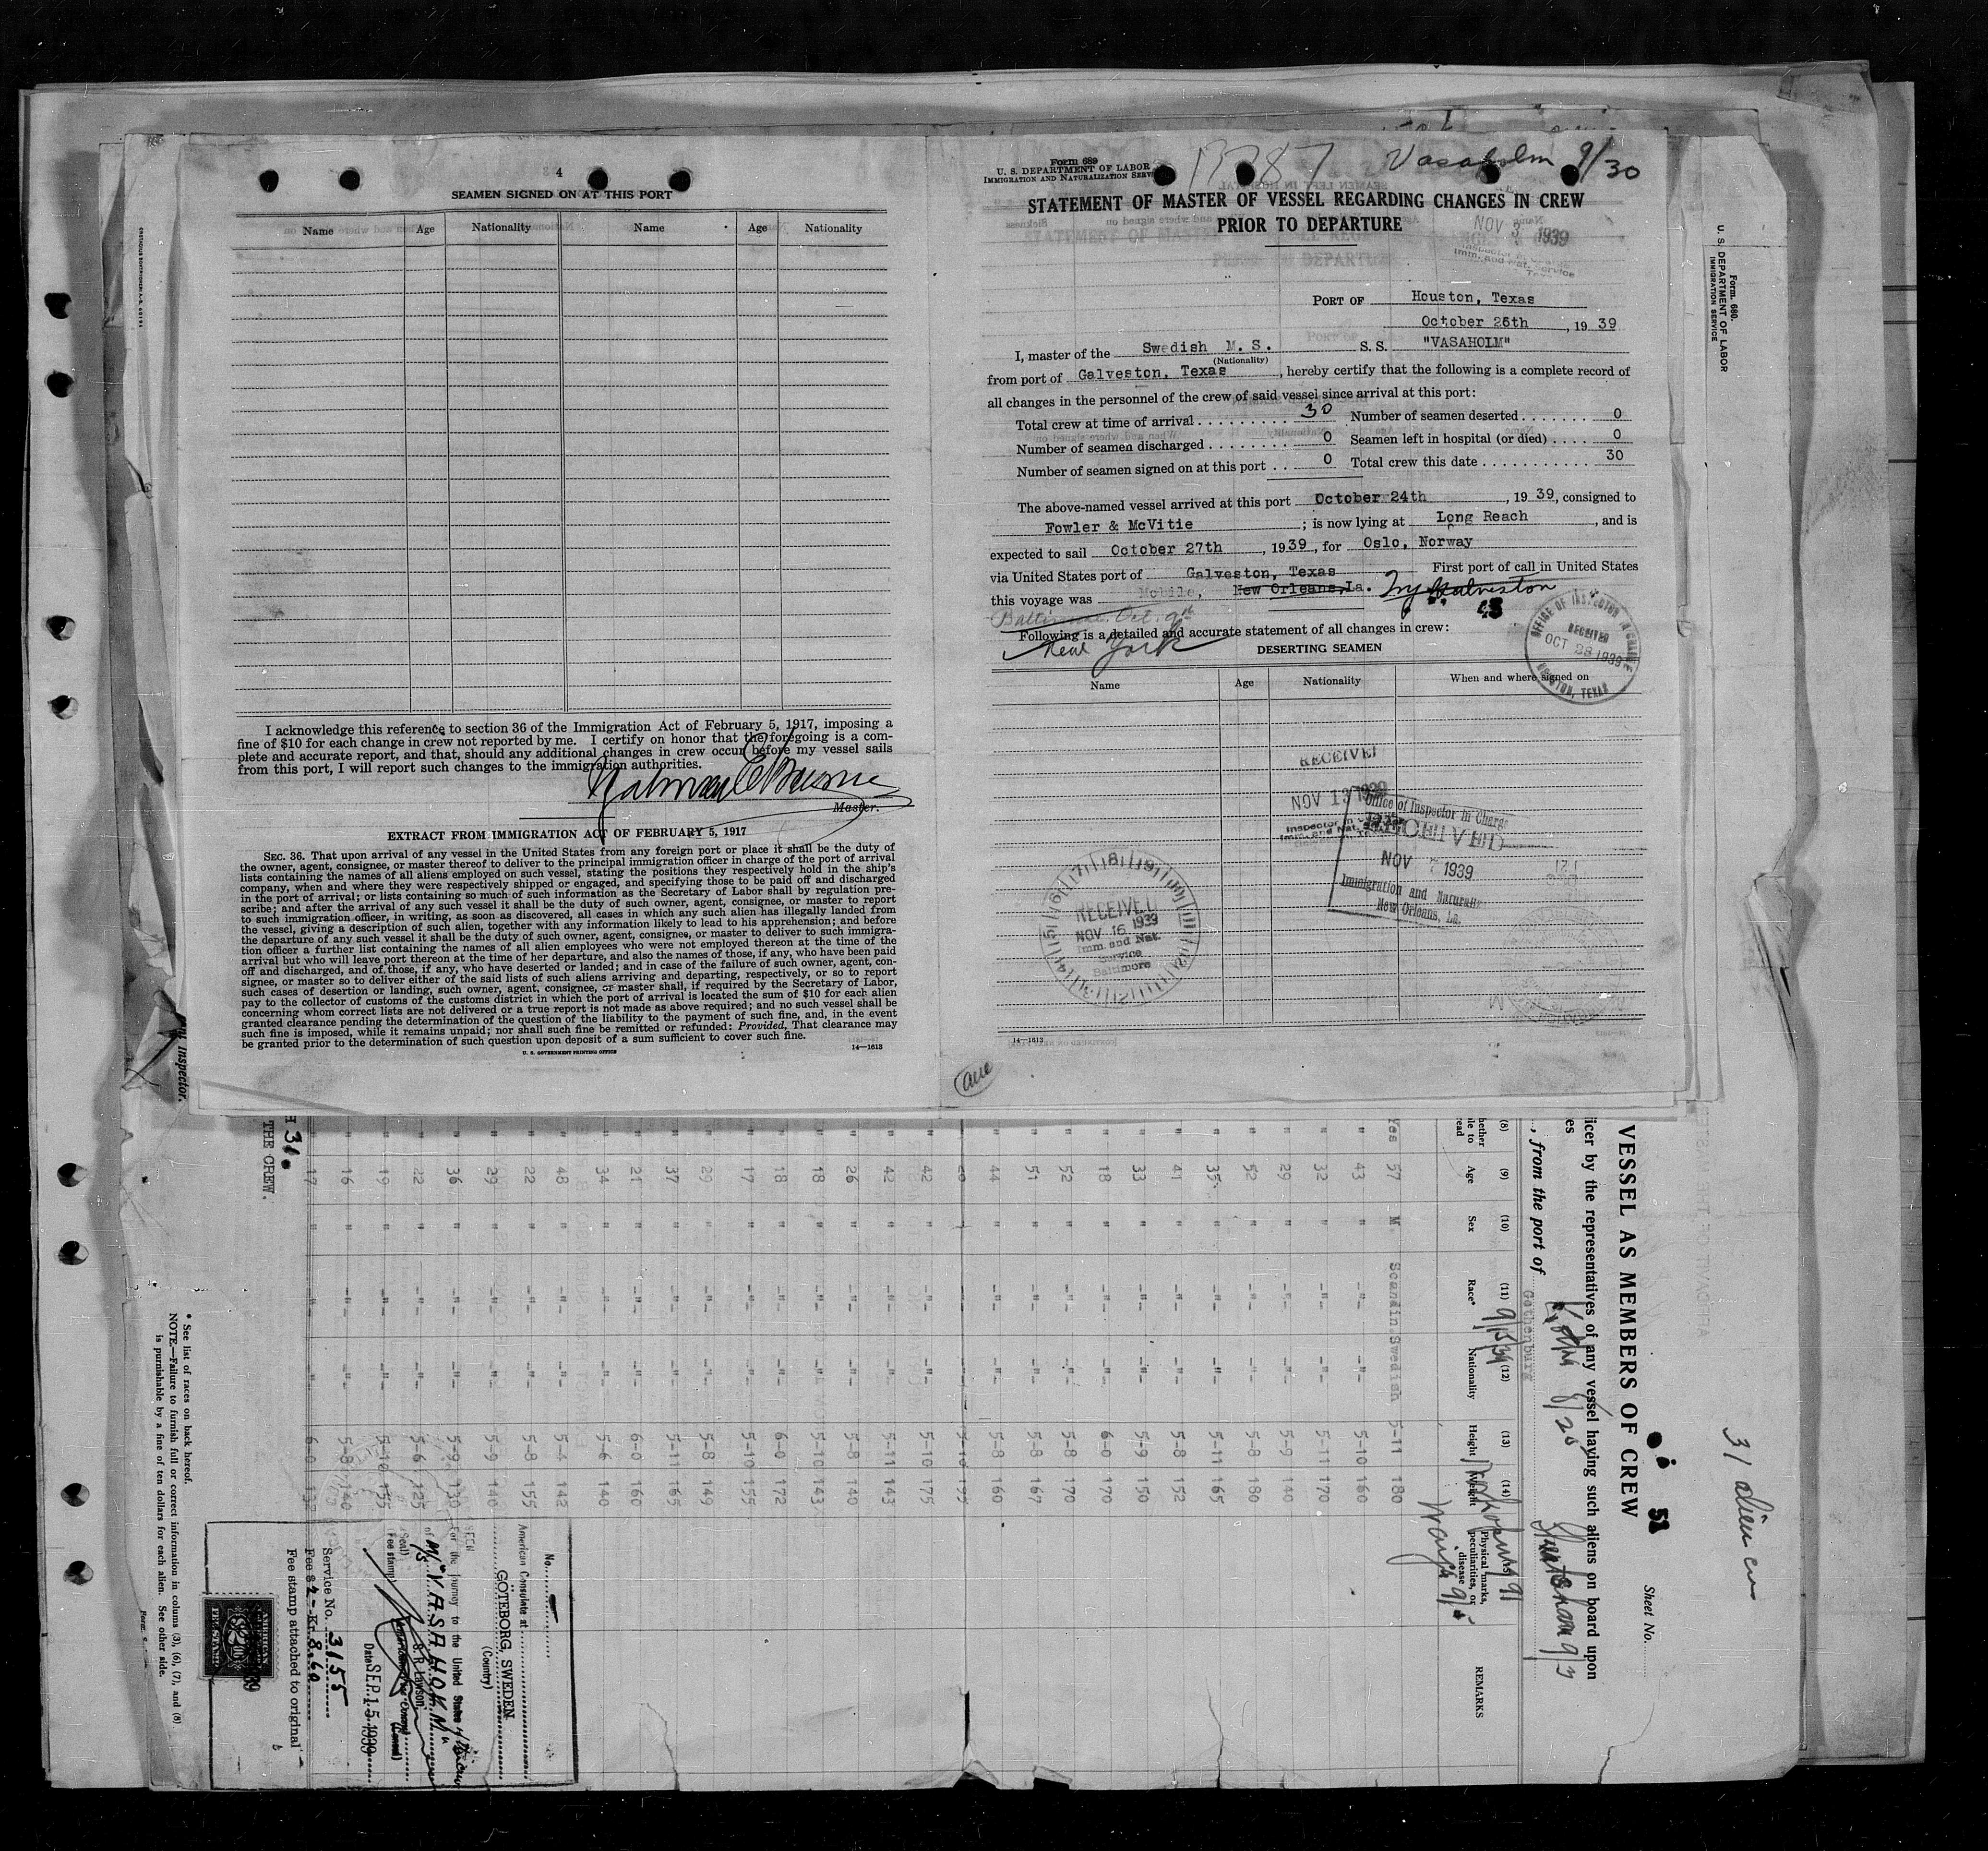 4
SEAMEN SIGNED ON AT THIS PORT
Name Age Nationality Name Age Nationality
I acknowledge this reference to section 36 of the Immigration Act of February 5, 1917, imposing a
fine of $10 for each change in crew not reported by me. I certify on honor that the foregoing is a com-
plete and accurate report, and that, should any additional changes in crew occur before my vessel sails
from this port, I will report such changes to the immigration authorities.
Master.
EXTRACT FROM IMMIGRATION ACT OF FEBRUARY 5, 1917
SEC. 36. That upon arrival of any vessel in the United States from any foreign port or place it shall be the duty of
the owner, agent, consignee, or master thereof to deliver to the principal immigration officer in charge of the port of arrival
lists containing the names of all aliens employed on such vessel, stating the positions they respectively hold in the ship's
company, when and where they were respectively shipped or engaged, and specifying those to be paid off and discharged
in the port of arrival; or lists containing so much of such information as the Secretary of Labor shall by regulation pre-
scribe; and after the arrival of any such vessel it shall be the duty of such owner, agent, consignee, or master to report
to such immigration officer, in writing, as soon as discovered, all cases in which any such alien has illegally landed from
the vessel, giving a description of such alien, together with any information likely to lead to his apprehension; and before
the departure of any such vessel it shall be the duty of such owner, agent, consignee, or master to deliver to such immigra-
tion officer a further list containing the names of all alien employees who were not employed thereon at the time of the
arrival but who will leave port thereon at the time of her departure, and also the names of those, if any, who have been paid
off and discharged, and of those, if any, who have deserted or landed; and in case of the failure of such owner, agent, con-
signee, or master so to deliver either of the said lists of such aliens arriving and departing, respectively, or so to report
such cases of desertion or landing, such owner, agent, consignee, or master shall, if required by the Secretary of Labor,
pay to the collector of customs of the customs district in which the port of arrival is located the sum of $10 for each alien
concerning whom correct lists are not delivered or a true report is not made as above required; and no such vessel shall be
granted clearance pending the determination of the question of the liability to the payment of such fine, and, in the event
such fine is imposed, while it remains unpaid; nor shall such fine be remitted or refunded: Provided, That clearance may
be granted prior to the determination of such question upon deposit of a sum sufficient to cover such fine.
U. S. GOVERNMENT PRINTING OFFICE 14—1613
Form 689
U. S. DEPARTMENT OF LABOR
IMMIGRATION AND NATURALIZATION SERVICE
Vasaholm 9/30
STATEMENT OF MASTER OF VESSEL REGARDING CHANGES IN CREW
PRIOR TO DEPARTURE
NOV 3 1939
PORT OF Houston, Texas
October 26th, 1939
I, master of the Swedish M. S. S. S. "VASAHOLM"
(Nationality)
from port of Galveston, Texas, hereby certify that the following is a complete record of
all changes in the personnel of the crew of said vessel since arrival at this port:
Total crew at time of arrival 30 Number of seamen deserted 0
Number of seamen discharged 0 Seamen left in hospital (or died) 0
Number of seamen signed on at this port 0 Total crew this date 30
The above-named vessel arrived at this port October 24th, 1939, consigned to
Fowler & McVitie; is now lying at Long Reach, and is
expected to sail October 27th, 1939, for Oslo, Norway
via United States port of Galveston, Texas First port of call in United States
this voyage was Mobile, New Orleans, La. Galveston
Baltimore Oct. 9th
Following is a detailed and accurate statement of all changes in crew:
New York
DESERTING SEAMEN
Name Age Nationality When and where signed on
OFFICE OF INSPECTOR IN CHARGE
RECEIVED
OCT 28 1939
HOUSTON, TEXAS
RECEIVED
NOV 13 1939
Office of Inspector in Charge
RECEIVED
NOV 7 1939
Immigration and Naturali
New Orleans, La.
RECEIVED
NOV 16 1939
Imm. and Nat.
Service
Baltimore
14—1613
Form 680.
U. S. DEPARTMENT OF LABOR
IMMIGRATION SERVICE
VESSEL AS MEMBERS OF CREW
Sheet No.
51
31 alien
icer by the representatives of any vessel having such aliens on board upon
, from the port of Gothenburg
(8) (9) (10) (11) (12) (13) (14)
Age Sex Race* Nationality Height Weight Physical marks, peculiarities, or disease REMARKS
Yes 57 M. Scandin. Swedish 5-11 180
" 43 " -"- -"- 5-10 160
" 32 " -"- -"- 5-11 170
" 29 " -"- -"- 5-9 140
" 52 " -"- -"- 5-8 180
" 35 " -"- -"- 5-11 165
" 41 " -"- -"- 5-8 152
" 33 " -"- -"- 5-9 150
" 18 " -"- -"- 6-0 170
" 52 " -"- -"- 5-8 170
" 51 " -"- -"- 5-8 167
" 44 " -"- -"- 5-8 160
5-10 195
" 42 " -"- -"- 5-10 175
" 42 " -"- -"- 5-11 143
" 26 " -"- -"- 5-8 140
" 18 " -"- -"- 5-10 143
" 18 " -"- -"- 6-0 172
" 17 " -"- -"- 5-10 155
" 29 " -"- -"- 5-8 149
" 37 " -"- -"- 5-11 165
" 21 " -"- -"- 6-0 160
" 34 " -"- -"- 5-6 140
" 48 " -"- -"- 5-4 142
" 22 " -"- -"- 5-8 155
" 29 " -"- -"- 5-9 140
" 36 " -"- -"- 5-9 130
" 22 " -"- -"- 5-6 125
" 19 " -"- -"- 5-10 155
" 16 " -"- -"- 5-8 140
" 17 " -"- -"- 6-0 137
31.
THE CREW.
No.
American Consulate at
GÖTEBORG, SWEDEN
(Country)
SEEN
For the journey to the United States
of M/S "VASAHOLM"
(Seal)
(Fee stamp)
Date SEP. 15. 1939
Service No. 3155
Fee $ 2 - Kr. 8.40
Fee stamp attached to original
* See list of races on back hereof.
NOTE.—Failure to furnish full or correct information in columns (3), (6), (7), and (8)
is punishable by a fine of ten dollars for each alien. See other side.
Inspector.